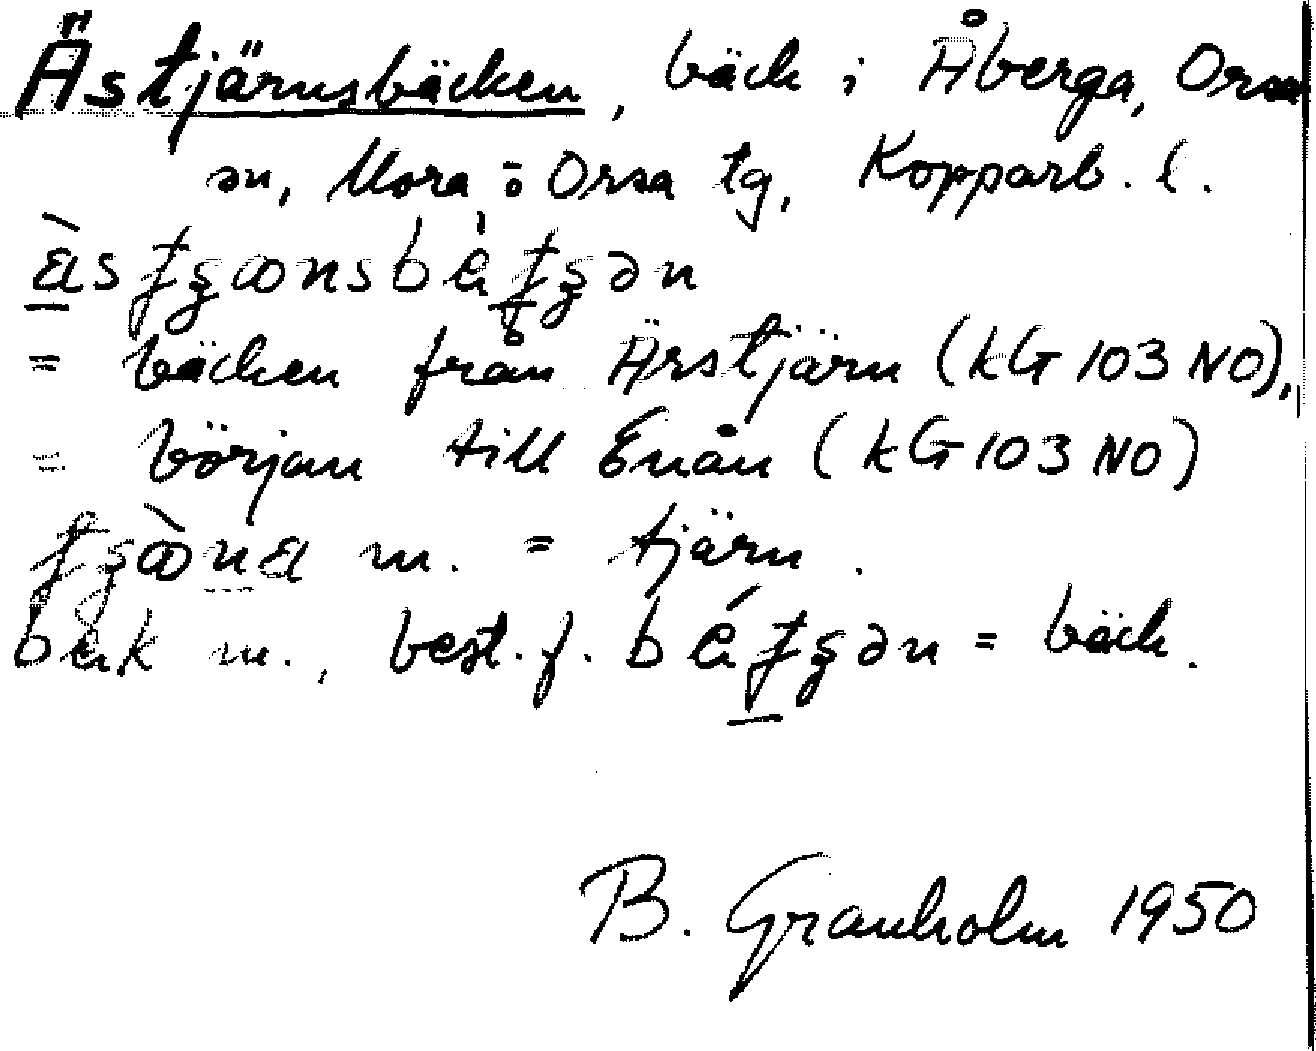 Ästjärnsbäcken, bäck i Åberga, Orsa
sn, Mora o Orsa tg, Kopparb. l.
= bäcken från Ärstjärn (kG 103 NO),
= början till Enån (kG 103 NO)
m. = tjärn.
m., best. f. = bäck.
B. Granholm 1950